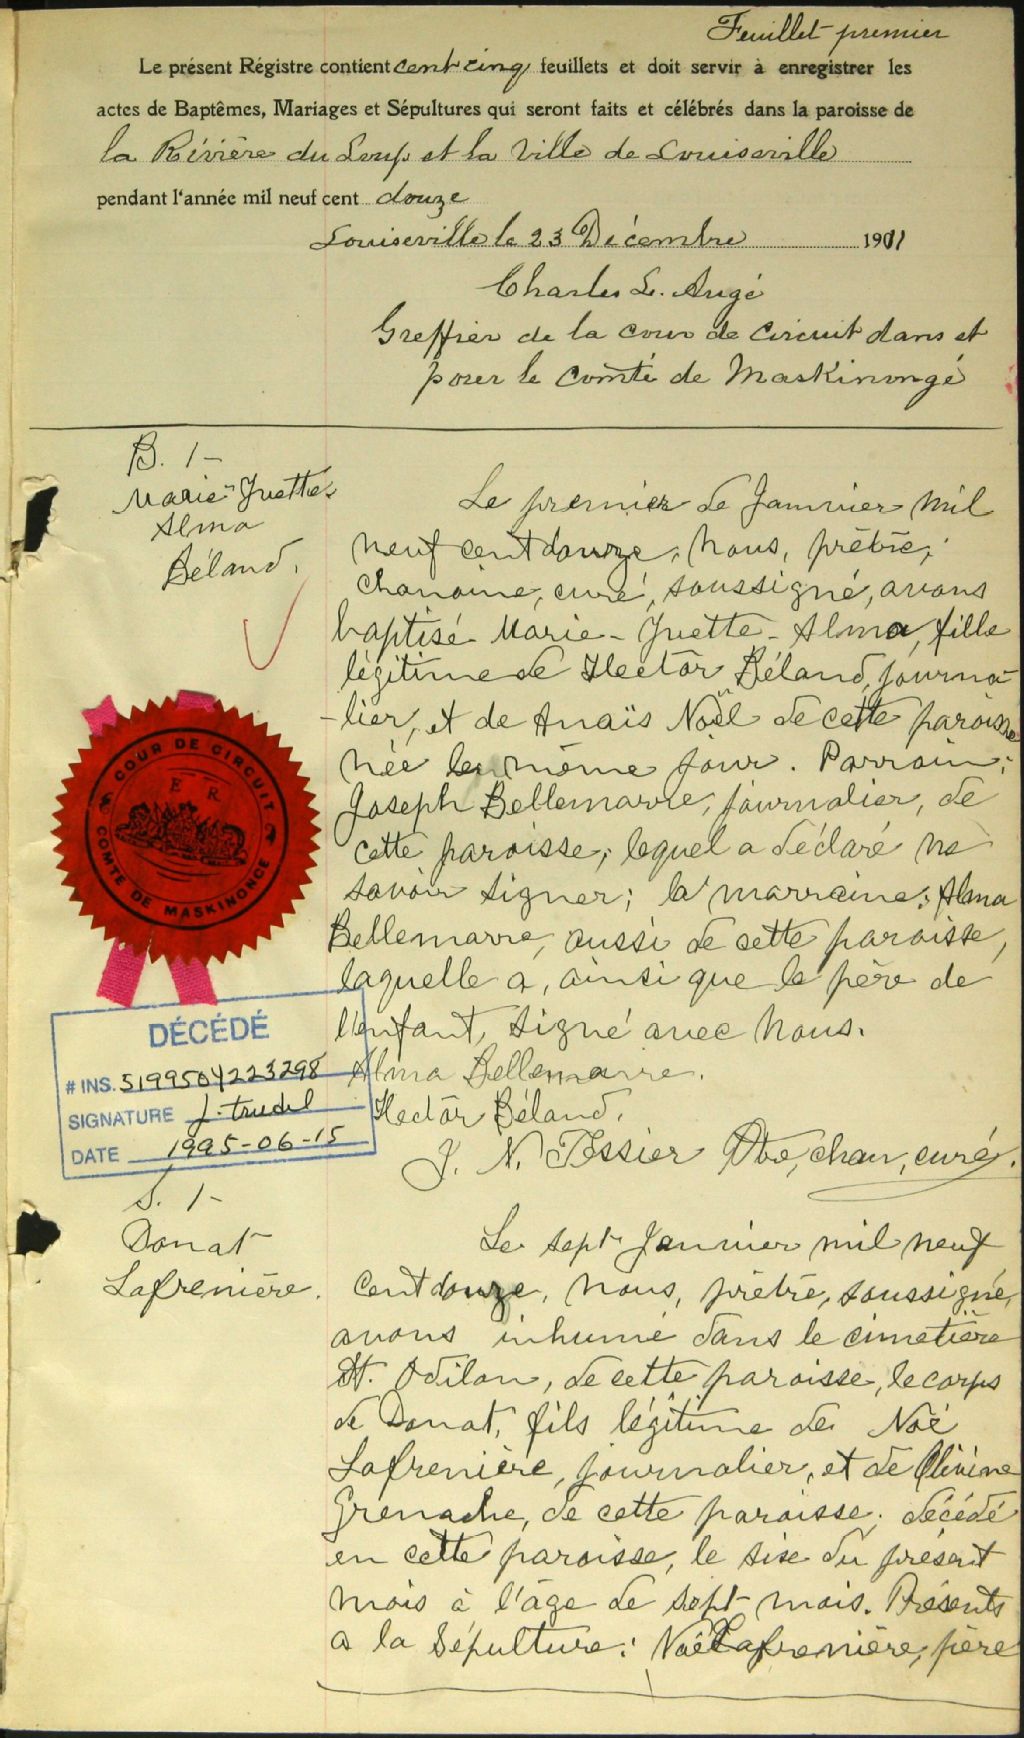 Feuillet premier
Le présent Régistre contient cent cinq feuillets et doit servir à enregistrer les
actes de Baptêmes, Mariages et Sépultures qui seront faits et célébrés dans la paroisse de
la Rivière du Loup et la Ville de Louiseville
pendant l'année mil neuf cent douze
Louiseville le 23 Décembre 1911
Charles L. Augé
Greffier de la cour de circuit dans et
pour le comté de Maskinongé
B. 1-
Marie-Yvette
Alma
Béland.
Le premier de Janvier mil
neuf cent douze, nous, prêtre,
chanoine, curé, soussigné, avons
baptisé Marie-Yvette-Alma, fille
légitime de Hector Béland, journa-
-lier, et de Anaïs Noël de cette paroisse
née le même jour. Parrain:
Joseph Bellemarre, journalier, de
cette paroisse, lequel a déclaré ne
savoir signer; la marraine: Alma
Bellemarre, aussi de cette paroisse,
laquelle a, ainsi que le père de
l'enfant, signé avec nous.
Alma Bellemarre.
Hector Béland.
J. N. Tessier Ptre, chan, curé.
COUR DE CIRCUIT
E R
COMTÉ DE MASKINONGE
DÉCÉDÉ
# INS. 5199504223298
SIGNATURE J. Trudel
DATE 1995-06-15
S. 1-
Donat
Lafrenière.
Le sept Janvier mil neuf
cent douze, nous, prêtre, soussigné,
avons inhumé dans le cimetière
St. Odilon, de cette paroisse, le corps
de Donat, fils légitime de Noé
Lafrenière, journalier, et de Olivine
Grenache, de cette paroisse, décédé
en cette paroisse, le six du présent
mois à l'âge de sept mois. Présents
a la sépulture: Noé Lafrenière, père